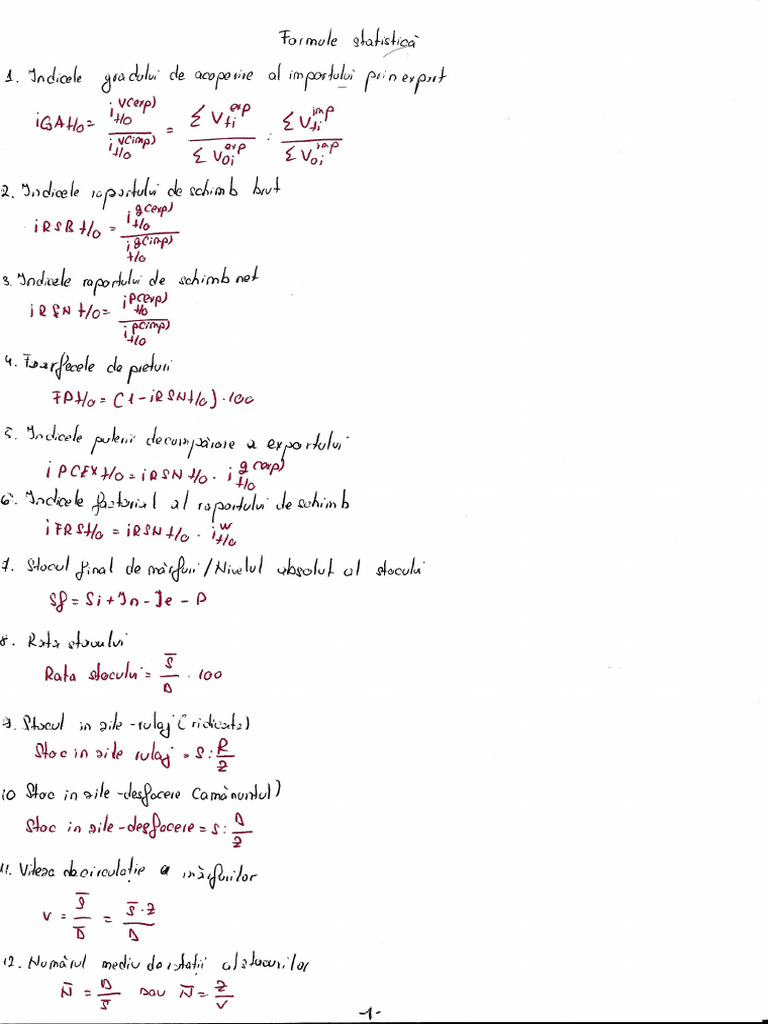 Formule statistică
1. Indicele gradului de acoperire al importului prin export
iGA t/0 = i t/0 V(exp) / i t/0 V(imp) = Σ V ti exp / Σ V 0i exp : Σ V ti imp / Σ V 0i imp
2. Indicele raportului de schimb brut
iRSB t/0 = i t/0 g(exp) / i t/0 g(imp)
3. Indicele raportului de schimb net
iRSN t/0 = i t/0 P(exp) / i t/0 P(imp)
4. Foarfecele de preturi
FP t/0 = (1 - iRSN t/0) · 100
5. Indicele puterii de cumpărare a exportului
iPCEX t/0 = iRSN t/0 · i t/0 g(exp)
6. Indicele factorial al raportului de schimb
iFRS t/0 = iRSN t/0 · i t/0 W
7. Stocul final de mărfuri / Nivelul absolut al stocului
Sf = Si + In - Ie - P
8. Rata stocului
Rata stocului = S̄ / D · 100
9. Stocul in zile-rulaj (ridicata)
Stoc in zile rulaj = S : R / Z
10 Stoc in zile-desfacere (amănuntul)
Stoc in zile-desfacere = S : D / Z
11. Viteza de circulație a mărfurilor
V = S̄ / D̄ = S̄ · Z / D
12. Numărul mediu de rotații al stocurilor
N̄ = D / S̄ sau N̄ = Z / V
-1-